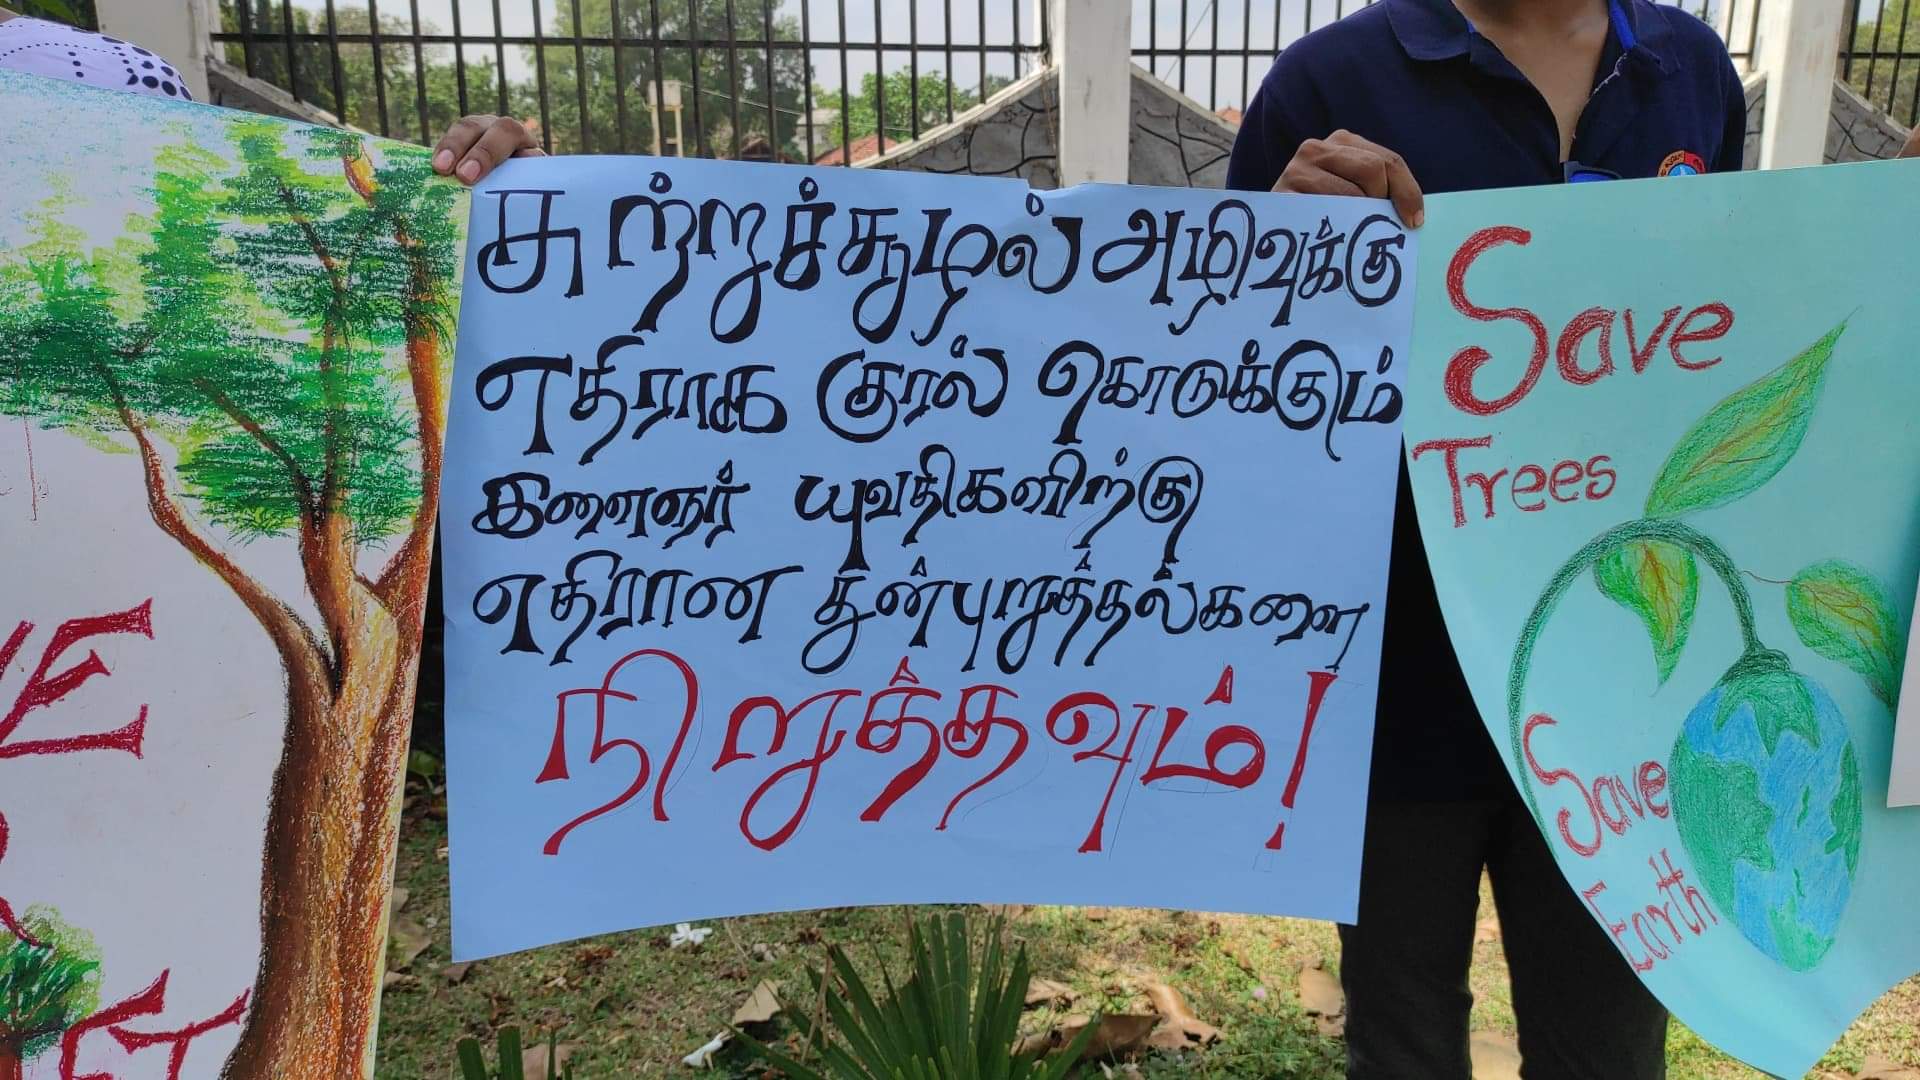 சுற்றுச்சூழல் அழிவுக்கு
எதிராக குரல் கொடுக்கும்
இளைஞர் யுவதிகளிற்கு
எதிரான துன்புறுத்தல்களை
நிறுத்தவும்!
Save
Trees
Save
Earth